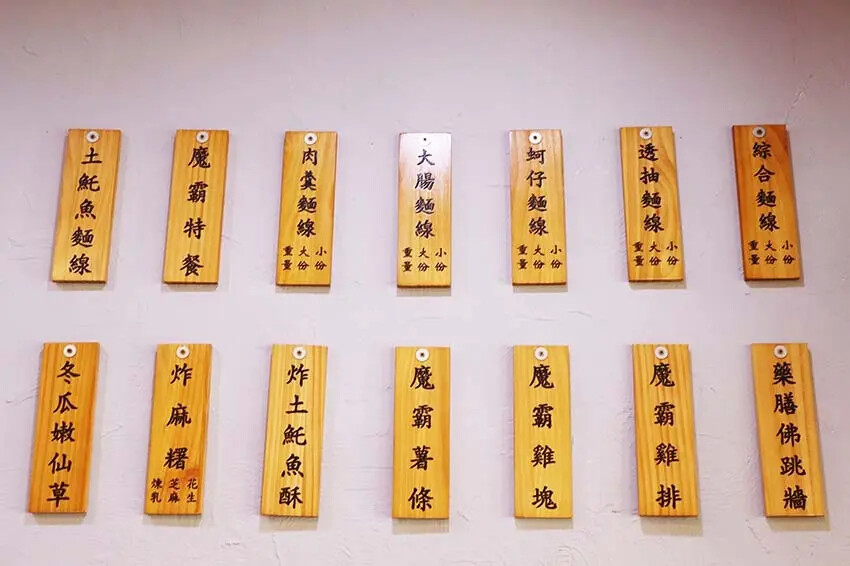 綜合麵線
小份
大份
重量
透抽麵線
小份
大份
重量
蚵仔麵線
小份
大份
重量
大腸麵線
小份
大份
重量
肉羹麵線
小份
大份
重量
魔霸特餐
土魠魚麵線
藥膳佛跳牆
魔霸雞排
魔霸雞塊
魔霸薯條
炸土魠魚酥
炸麻糬
花生
芝麻
煉乳
冬瓜嫩仙草